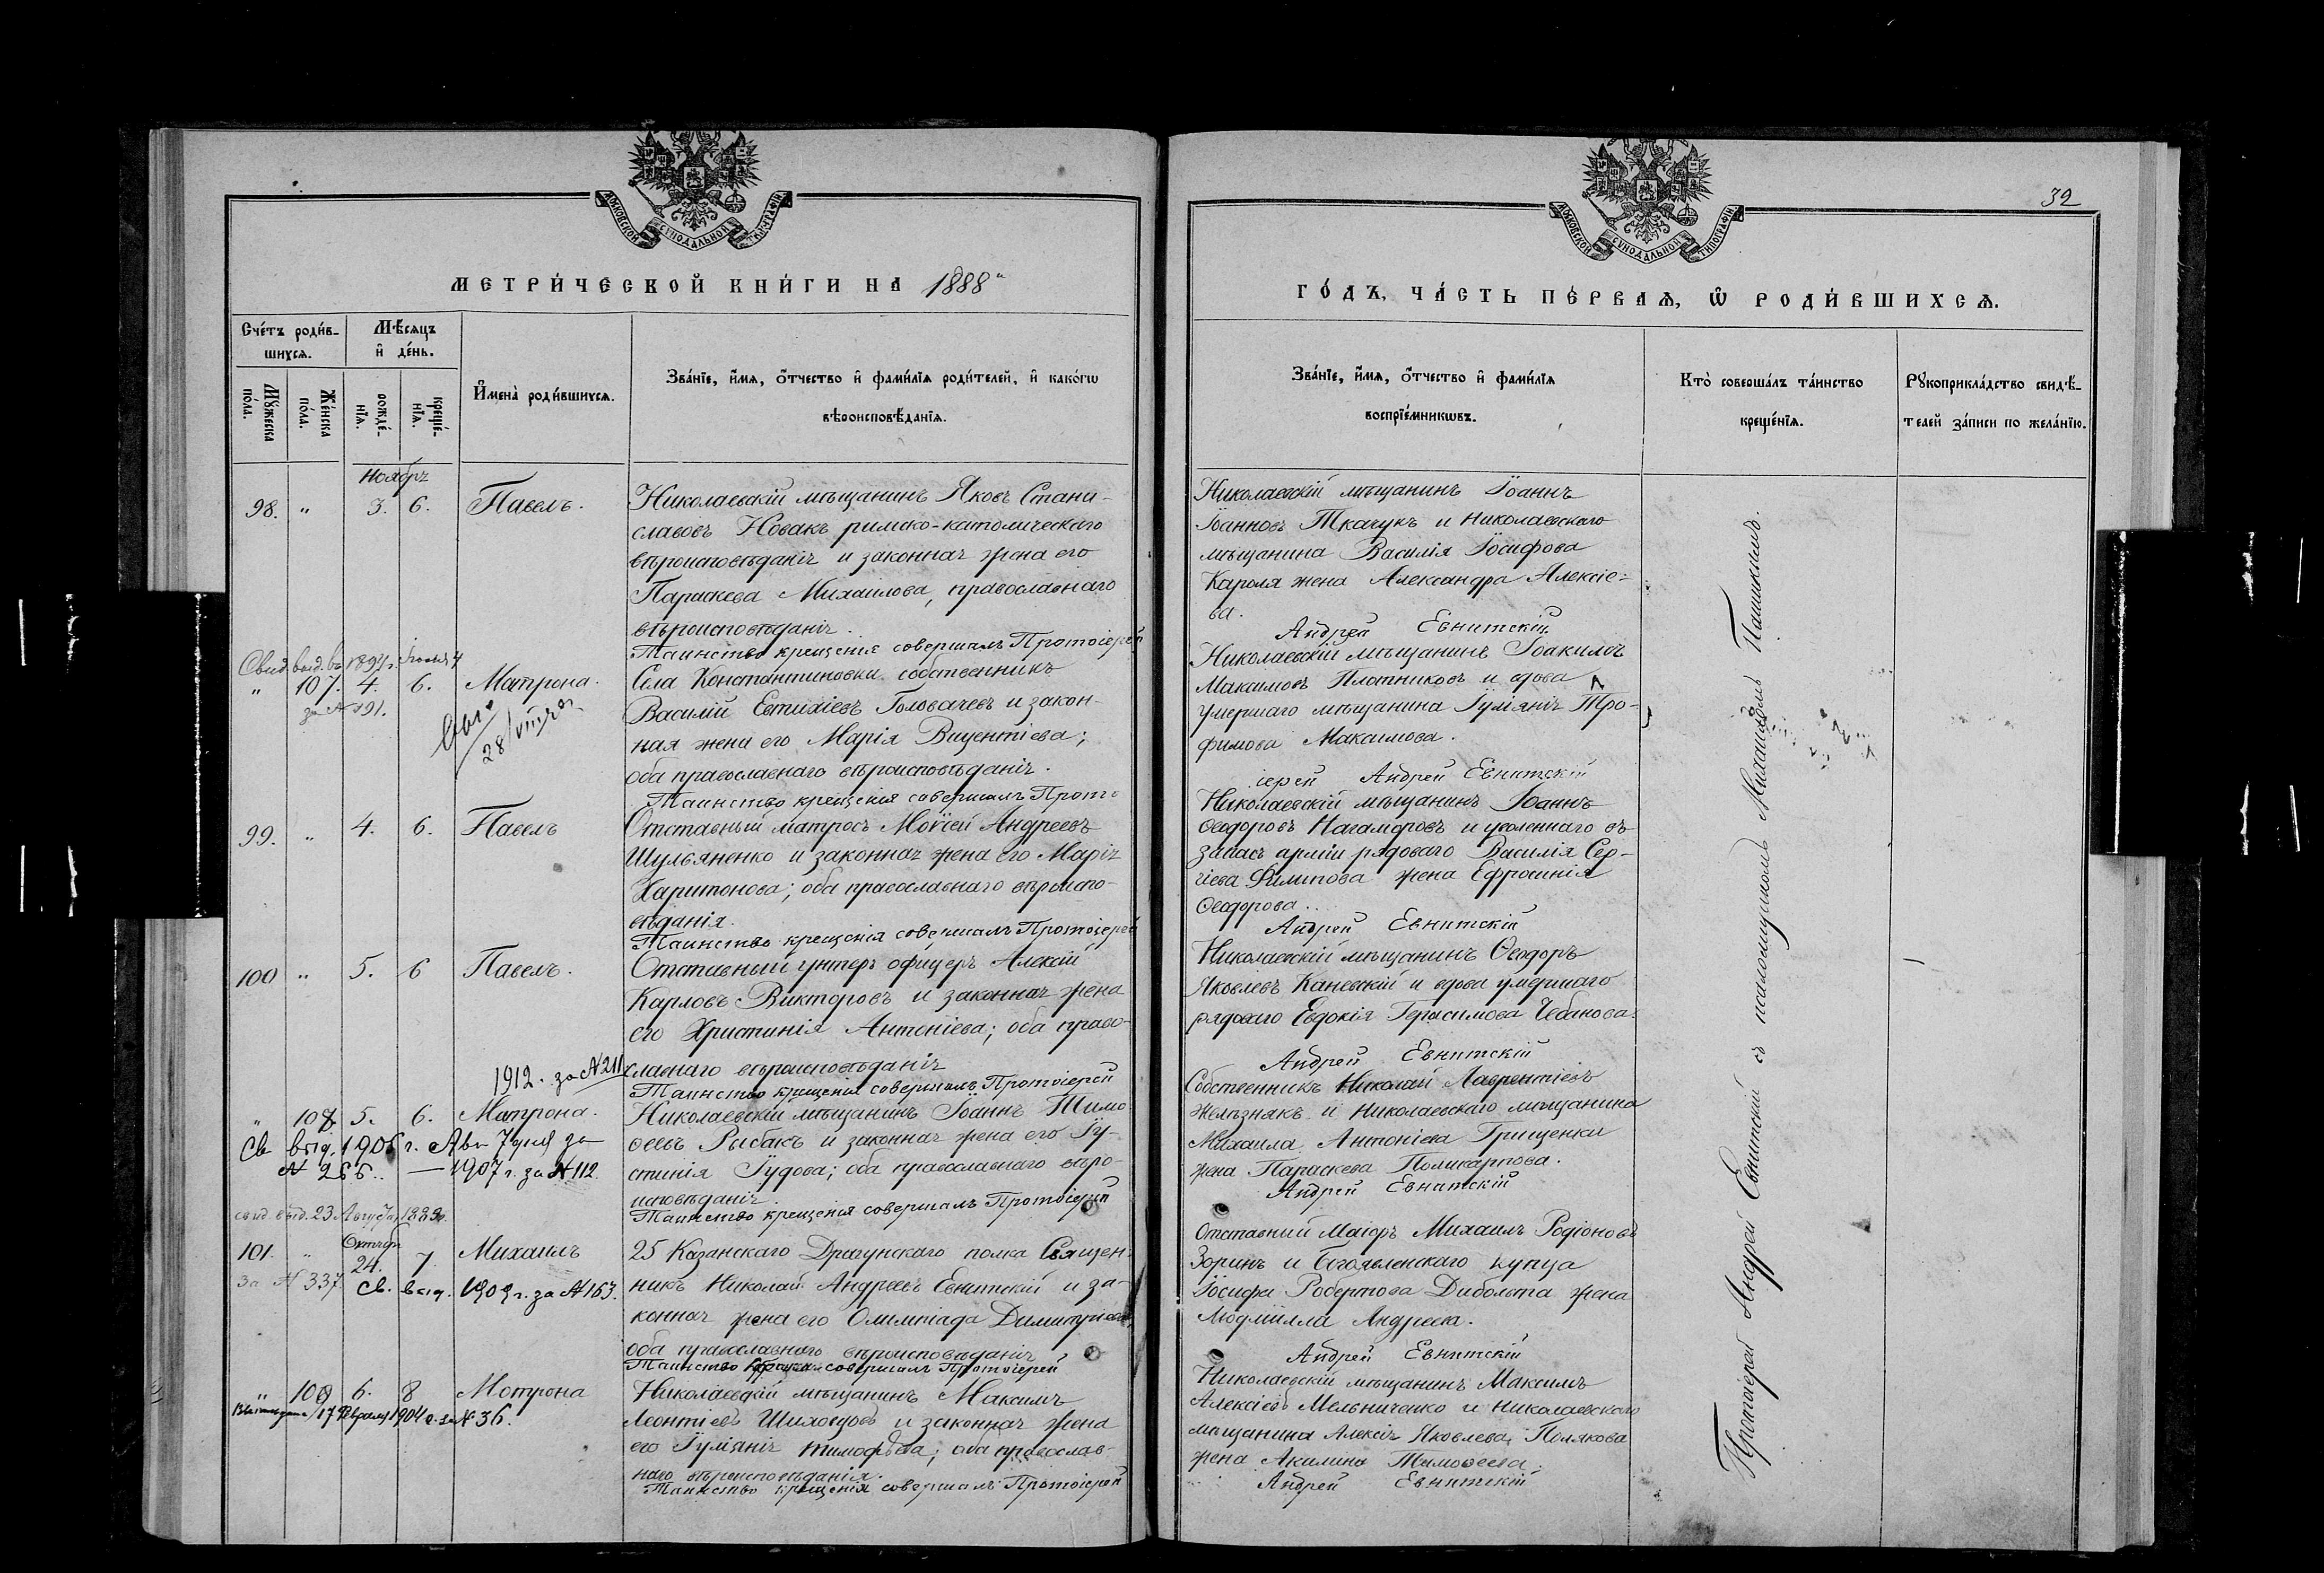 МОСКОВСКОЙ СѴНОДАЛЬНОЙ ТИПОГРАФІИ
МЕТРИ́ЧЕСКОЙ КНИ́ГИ НА 1888
Сче́тъ роди́в-
шихся.
Мѣ́сяцъ
и҆ де́нь.
Мꙋ́жеска
по́ла.
Же́нска
по́ла.
рожде́-
нїѧ.
креще́-
нїѧ.
И҆мена̀ роди́вшихсѧ.
Зва́нїе, и҆́мѧ, ѻ҆́тчество и҆ фами́лїѧ роди́телей, и҆ како́гѡ
вѣроисповѣ́данїѧ.
Ноябрь
98. " 3. 6. Павелъ. Николаевскій мѣщанинъ Яковъ Стани-
славовъ Новакъ римско-католическаго
вѣроисповѣданія и законная жена его
Параскева Михаилова, православнаго
вѣроисповѣданія.
Таинство крещенія совершалъ Протоіерей
Свид. выд. въ 189
" 107. 4. 6. Матрона. Села Константиновки собственникъ
за № 191.
28/VIII
Василій Евтихіевъ Головачевъ и закон-
ная жена его Марія Викентіева;
оба православнаго вѣроисповѣданія.
Таинство крещенія совершалъ Прото
99. " 4. 6. Павелъ Отставный матросъ Моѵсей Андреевъ
Шульяненко и законная жена его Марія
Харитонова; оба православнаго вѣроиспо-
вѣданія.
Таинство крещенія совершалъ Протоіерей
100 " 5. 6 Павелъ. Отставный унтеръ офицеръ Алексій
Карловъ Викторовъ и законная жена
его Христинія Антоніева; оба право-
1912. за № 211
славнаго вѣроисповѣданія
Таинство крещенія совершалъ Протоіерей
" 108 5. 6. Матрона. Николаевскій мѣщанинъ Іоаннъ Тимо
Св выд. 1906 г. Авг 7 дня за
ѳеевъ Рыбакъ и законная жена его Іу-
№ 266.. — 1907 г. за № 112.
стинія Іудова; оба православнаго вѣро-
исповѣданія.
Таинство крещенія совершалъ Протоіерей
свид. выд. 23 Августа 1889
Октябр
101. " 24. 7. Михаилъ 25 Казанскаго Драгунскаго полка Священ-
за № 337. св. выд. 1909 г. за № 163.
никъ Николай Андреевъ Евнитскій и за-
конная жена его Олимпіада Димитріева,
оба православнаго вѣроисповѣданія
Таинство крещенія совершалъ Протоіерей
" 109 6. 8 Мотрона Николаевскій мѣщанинъ Максимъ
17 Февраля 1904 г. за № 36.
Леонтіевъ Шиховцовъ и законная жена
его Іуліанія Тимофѣева; оба православ-
наго вѣроисповѣданія.
Таинство крещенія совершалъ Протоіерей
32
МОСКОВСКОЙ СѴНОДАЛЬНОЙ ТИПОГРАФІИ
ГО́ДЪ, ЧА́СТЬ ПЕ́РВАѦ, Ѡ҆ РОДИ́ВШИХСѦ.
Зва́нїе, и҆́мѧ, ѻ҆́тчество и҆ фами́лїѧ
воспрїе́мникѡвъ.
Кто̀ соверша́лъ та́инство
креще́нїѧ.
Рꙋкоприкла́дство свидѣ́-
телей за́писи по жела́нїю.
Николаевскій мѣщанинъ Іоаннъ
Іоанновъ Ткачукъ и Николаевскаго
мѣщанина Василія Іосифова
Кароля жена Александра Алексіе-
ва.
Андрей Евнитскій.
Николаевскій мѣщанинъ Іоакимъ
Максимовъ Плотниковъ и вдова
умершаго мѣщанина Іуліанія Тро-
фимова Максимова.
іерей Андрей Евнитскій
Николаевскій мѣщанинъ Іоаннъ
Ѳеодоровъ Нагаморовъ и уволеннаго въ
запасъ арміи рядоваго Василія Сер-
гіева Филипова жена Ефросинія
Ѳеодорова..
Андрей Евнитскій
Николаевскій мѣщанинъ Ѳеодоръ
Яковлевъ Каневскій и вдова умершаго
рядоваго Евдокія Герасимова Чебанова.
Андрей Евнитскій
Собственникъ Николай Лаврентіевъ
Желѣзнякъ и Николаевскаго мѣщанина
Михаила Антоніева Грищенки
жена Параскева Поликарпова.
Андрей Евнитскій
Отставный Маіоръ Михаилъ Родіоновъ
Зоринъ и Богоявленскаго купца
Іосифа Робертова Дибольта жена
Людмилла Андреева.
Андрей Евнитскій
Николаевскій мѣщанинъ Максимъ
Алексіевъ Мельниченко и Николаевскаго
мѣщанина Алексія Яковлева Полякова
жена Акилина Тимоѳеева.
Андрей Евнитскій
Протоіерей Андрей Евнитскій съ псаломщикомъ Михаиломъ Пашкинымъ.